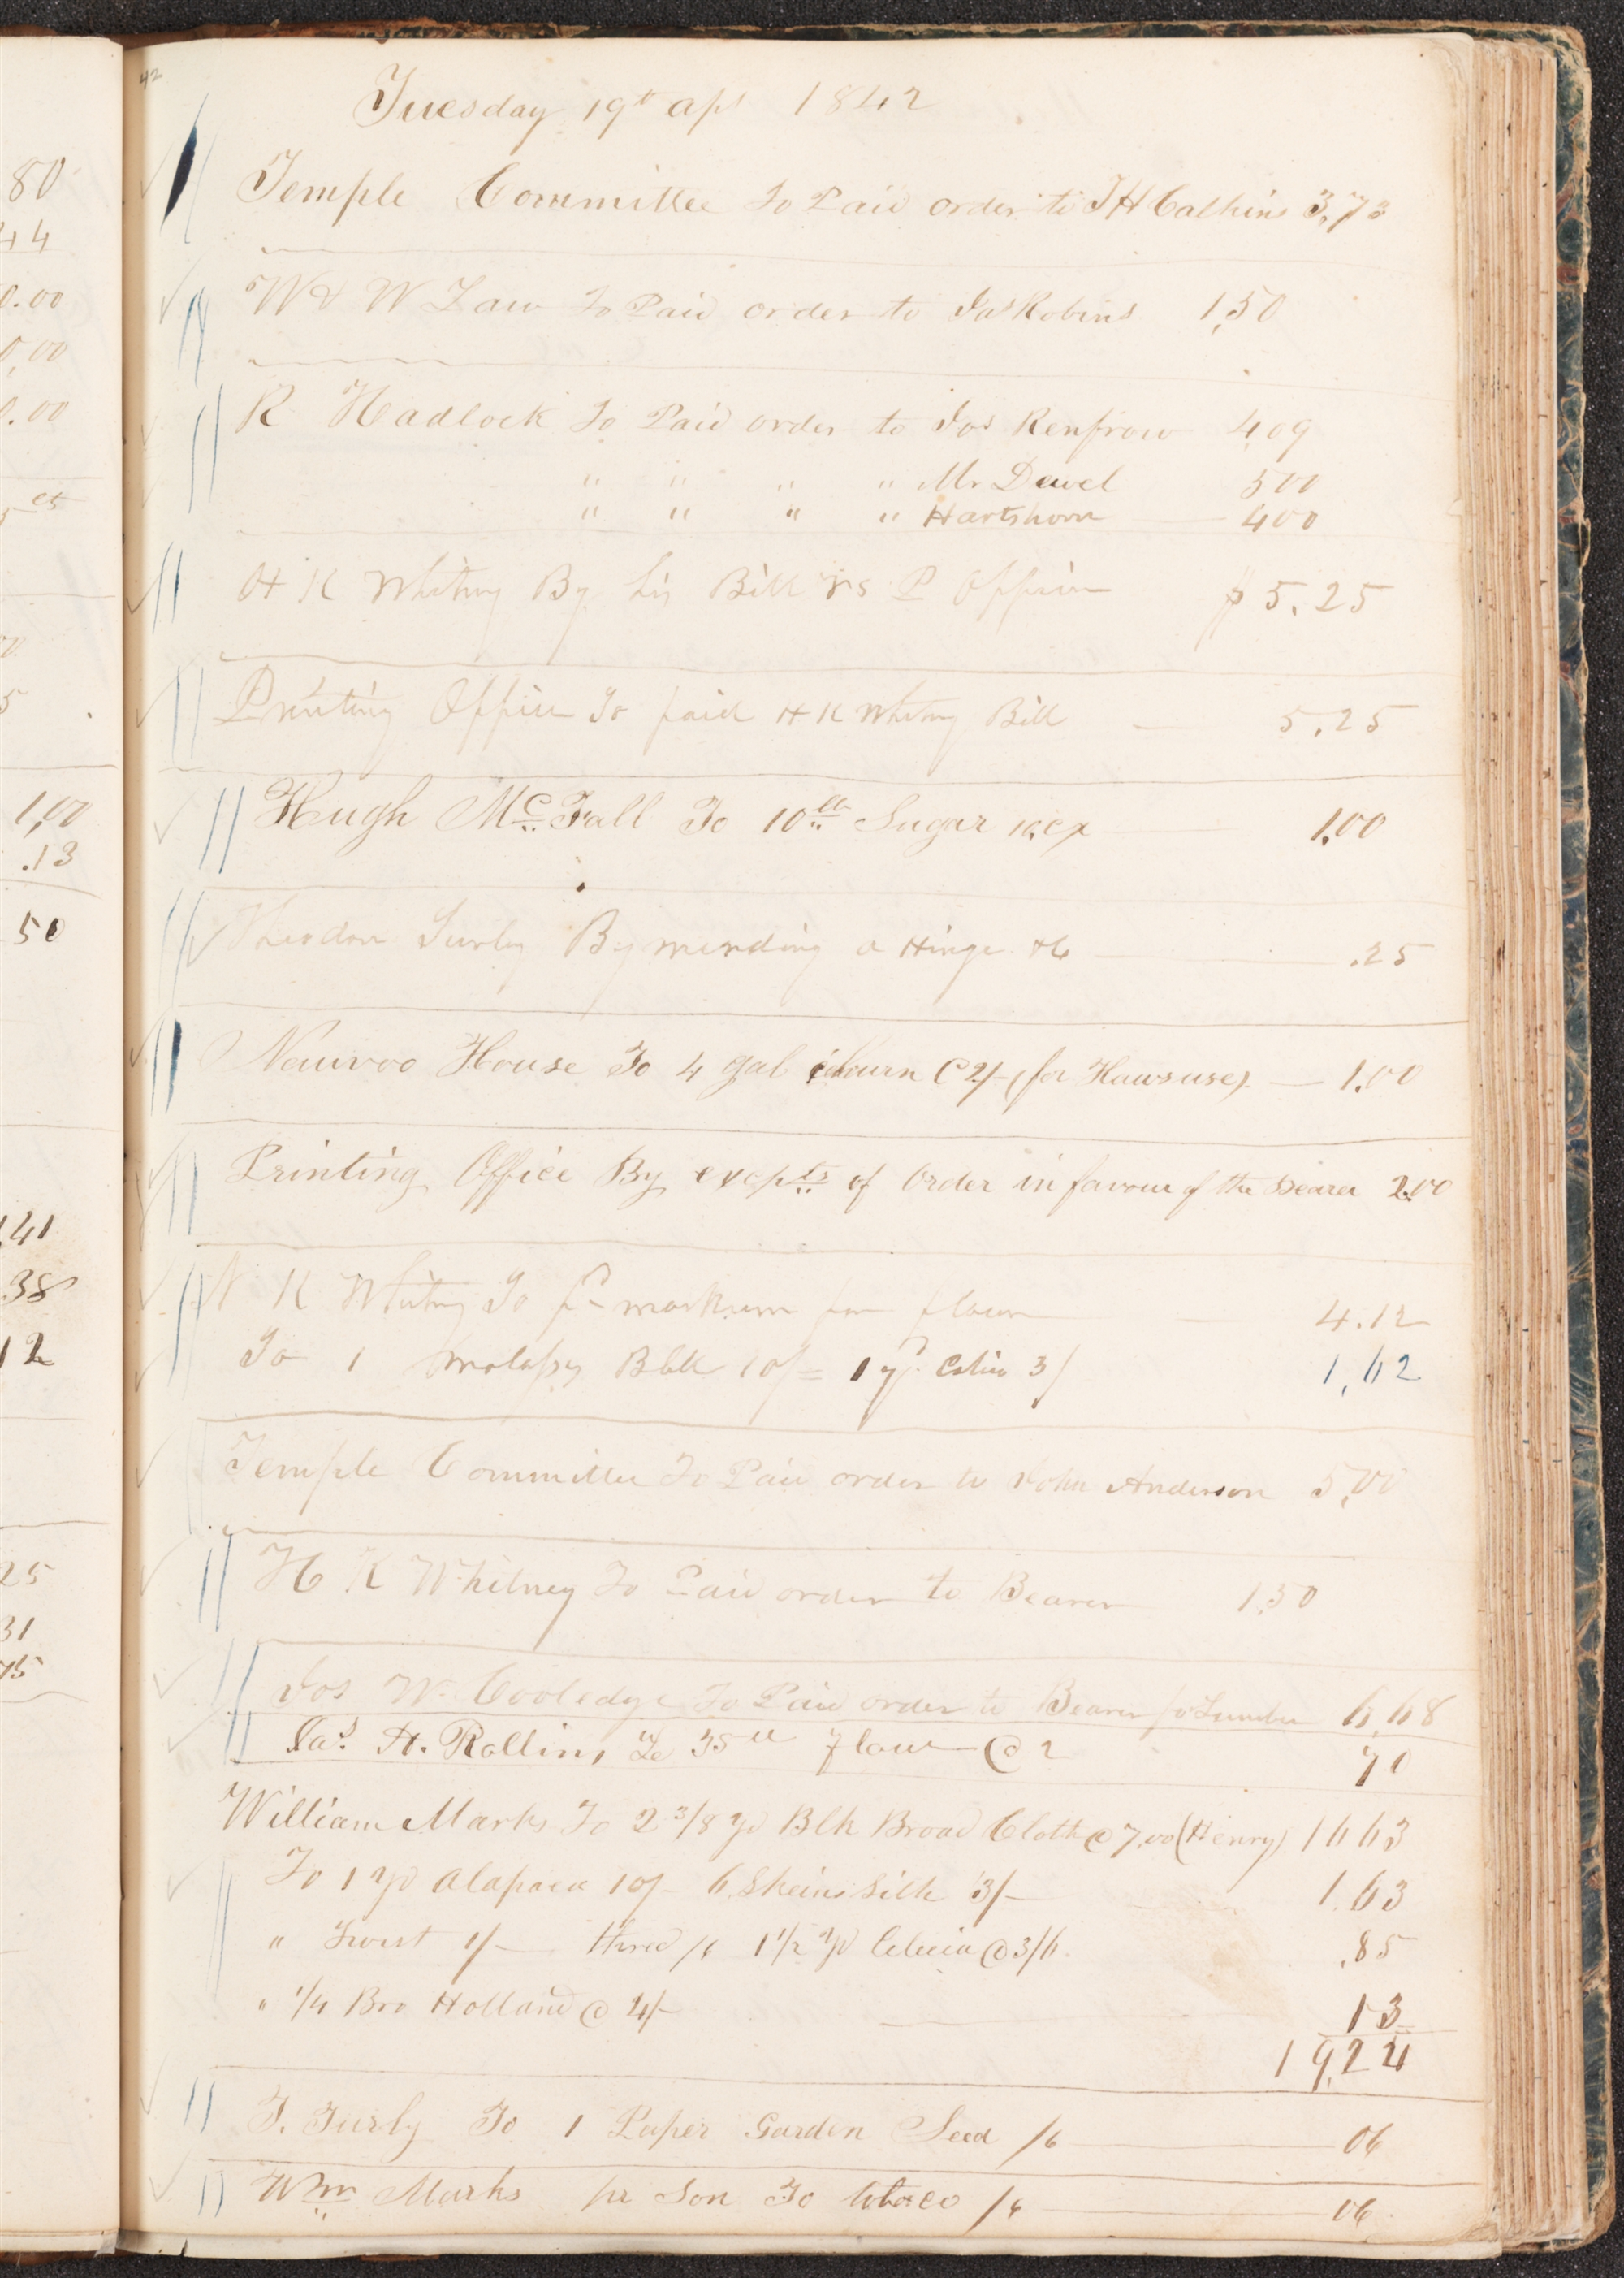 42
Tuesday 19th apl 1842
Temple Committee To Paid order to J H Calkins 3,73
W & W Law To Paid order to Jas Robins 1,50
R Hadlock To Paid order to Jos Renfrow 4,09
" " " " Mr Deuel 500
" " " " Hartshorn 400
H K Whitney By his Bill vs P Office $ 5.25
Printing Office To paid H K Whitney Bill 5.25
Hugh Mc Fall To 10 lb Sugar 1.00
Theodore Turley By mending a Hinge &c .25
Nauvoo House To 4 gal @ 2/- (for Haws use) 1.00
Printing Office By of Order in favour of the Bearer 2.00
N K Whitney To 4.12
To 1 10/- 1 3/ 1,62
Temple Committee To Paid order to John Anderson 5,00
H K Whitney To Paid order to Bearer 1.50
Jos W. Cooledge To Paid order to Bearer for Lumber 6,68
Jas. H. Rollins To 35 lb flour @ 2 70
William Marks To 2 3/8 yd Blk Broad Cloth @ 7,00 (Henry) 16 63
To 1 yd alapaca 10/- 6 Skeins Silk 3/- 1.63
" Twist 1/- thred /6 1 1/2 yd @ 3/6 .85
" 1/4 Bro Holland @ 4/- 13
19,24
T. Turly To 1 Paper Garden Seed /6 06
Wm Marks pr Son To tobacco /6 06
80
44
0.00
0,00
0.00
1,00
.13
50
.41
38
12
25
31
75